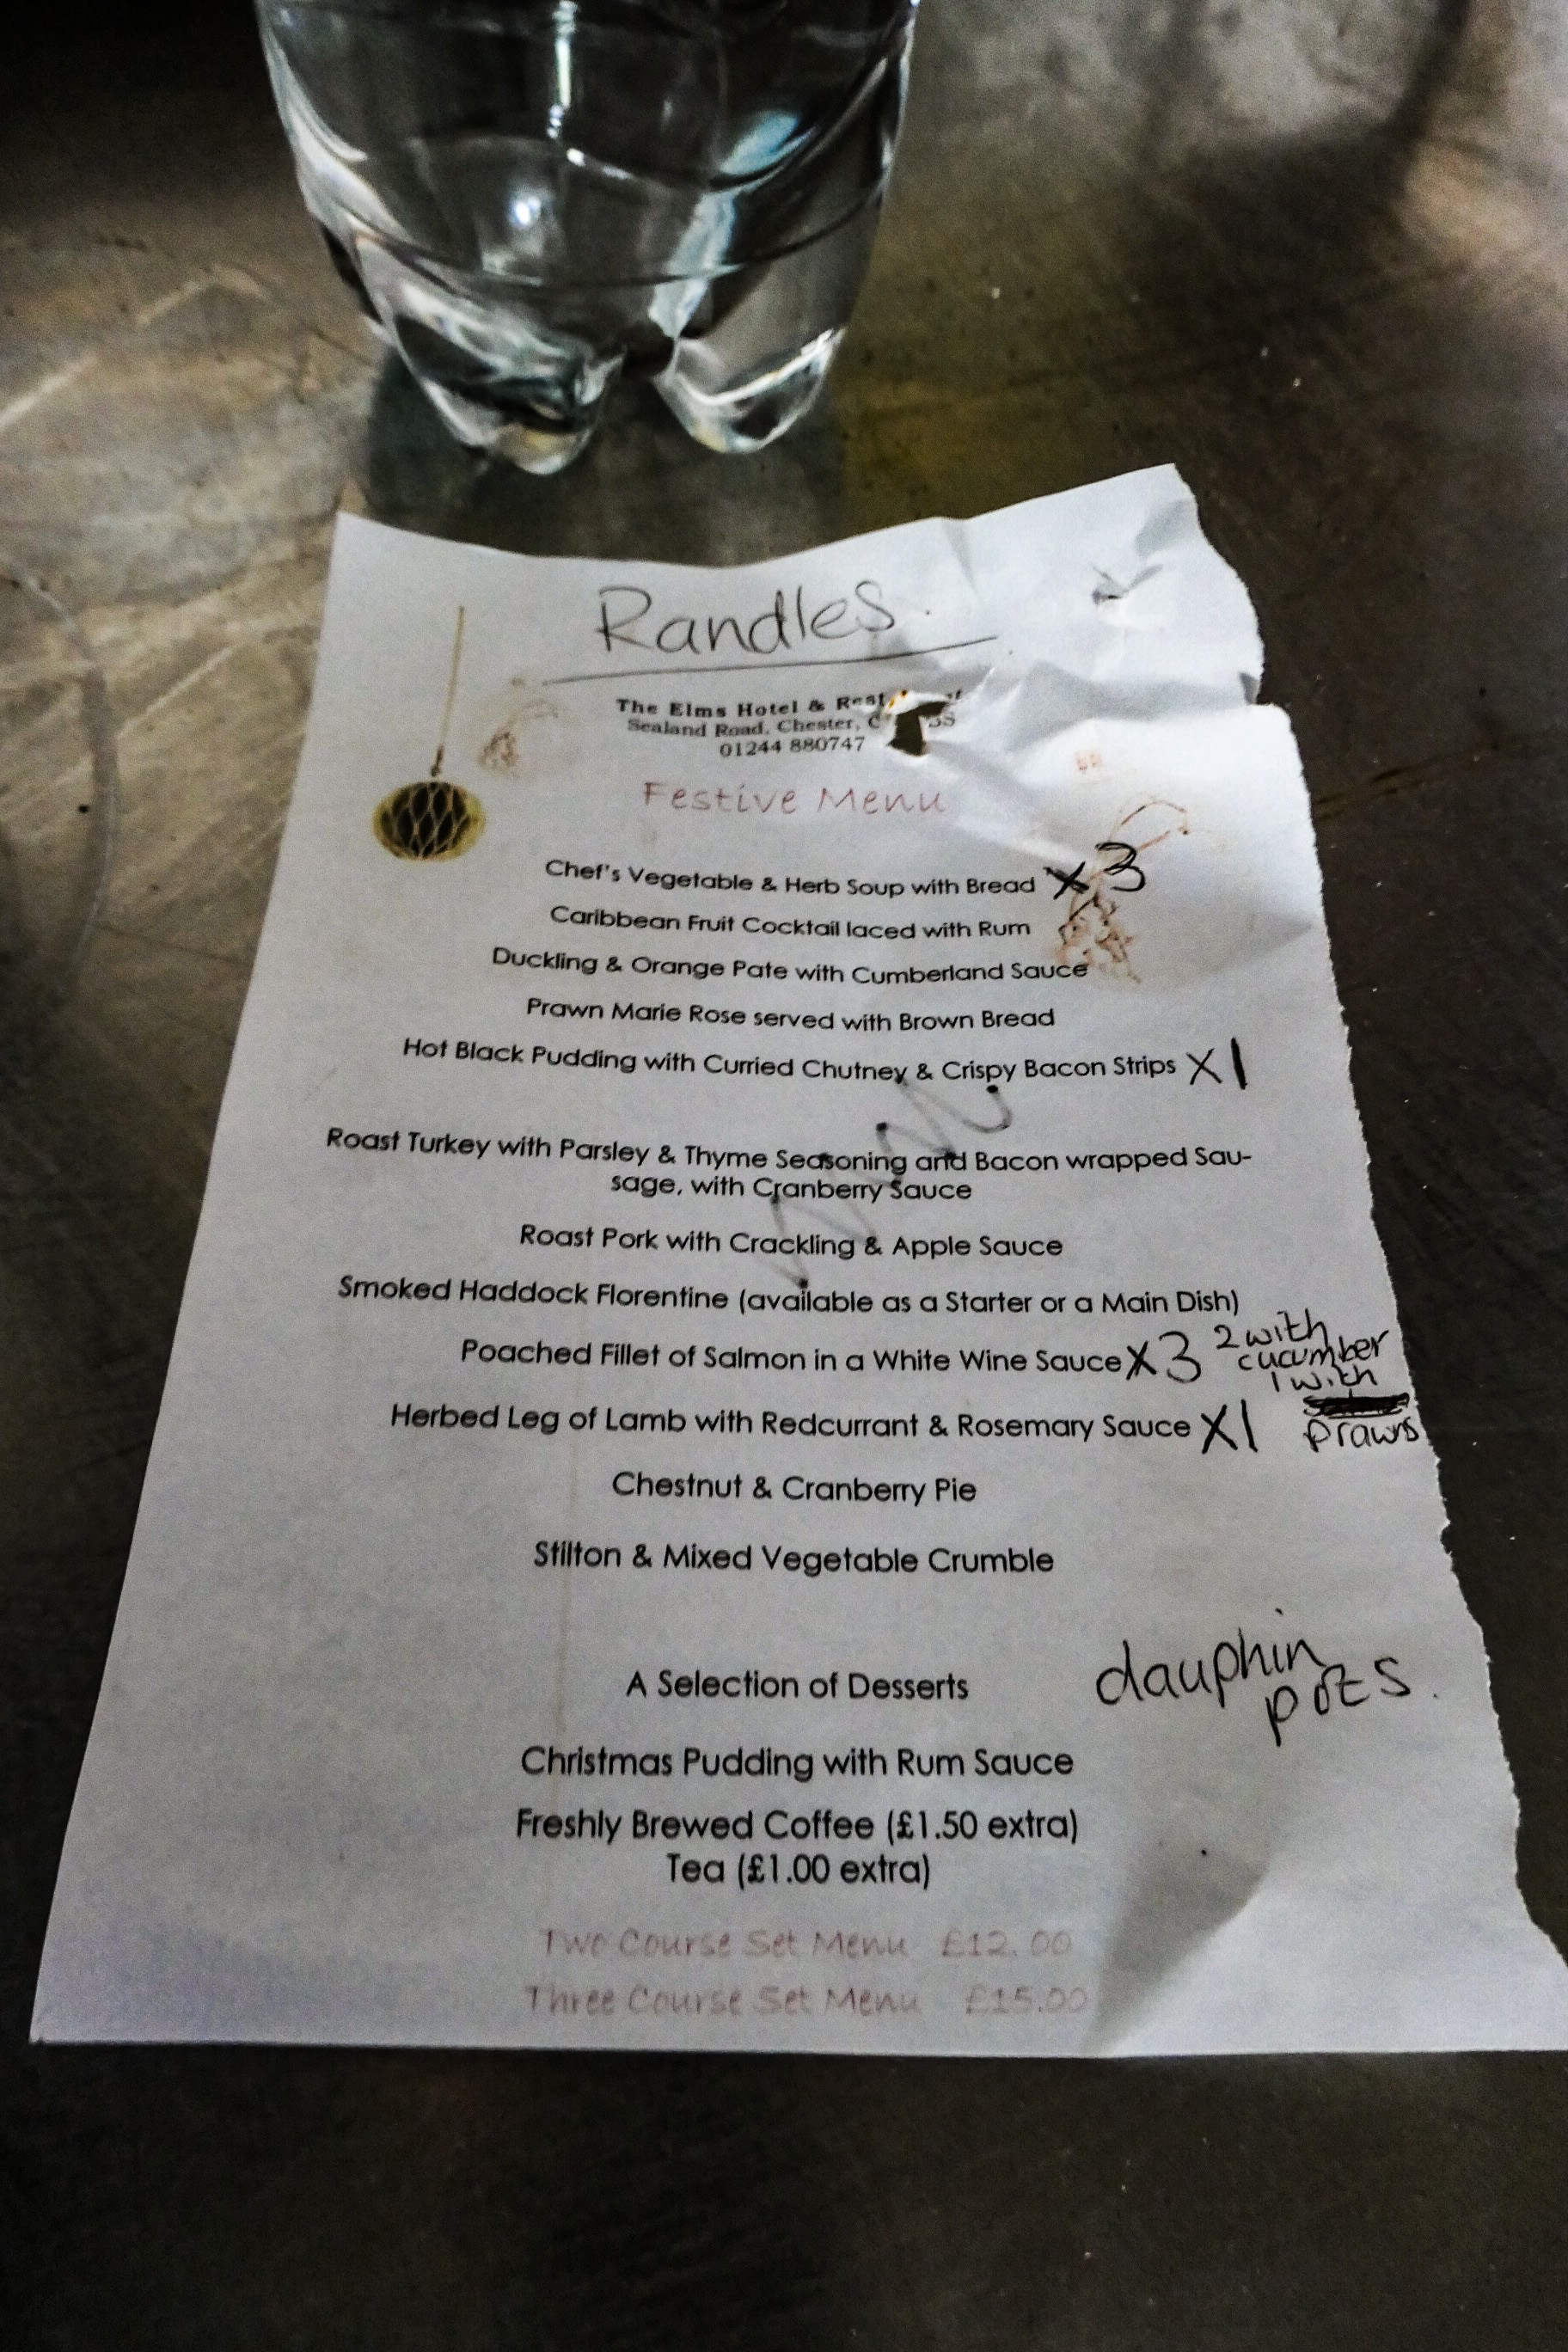 Randles.
The Elms Hotel & Rest
Sealand Road, Chester, C
01244 880747
Festive Menu
Chef's Vegetable & Herb Soup with Bread x3
Caribbean Fruit Cocktail laced with Rum
Duckling & Orange Pate with Cumberland Sauce
Prawn Marie Rose served with Brown Bread
Hot Black Pudding with Curried Chutney & Crispy Bacon Strips x1
Roast Turkey with Parsley & Thyme Seasoning and Bacon wrapped Sau-
sage, with Cranberry Sauce
Roast Pork with Crackling & Apple Sauce
Smoked Haddock Florentine (available as a Starter or a Main Dish)
Poached Fillet of Salmon in a White Wine Sauce x3
2 with
cucumber
1 with
prawns
Herbed Leg of Lamb with Redcurrant & Rosemary Sauce x1
Chestnut & Cranberry Pie
Stilton & Mixed Vegetable Crumble
dauphin
pots.
A Selection of Desserts
Christmas Pudding with Rum Sauce
Freshly Brewed Coffee (£1.50 extra)
Tea (£1.00 extra)
Two Course Set Menu £12.00
Three Course Set Menu £15.00